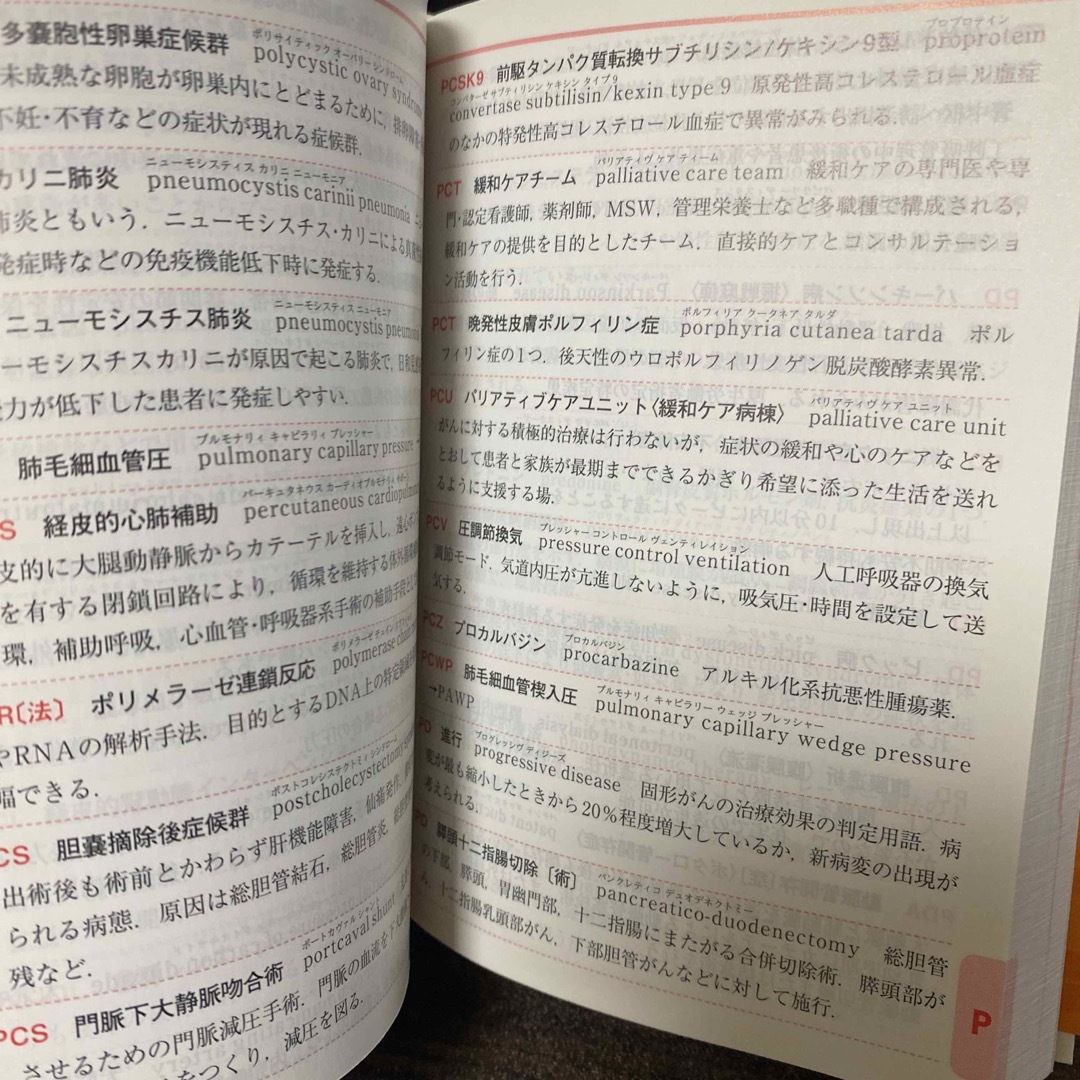 ポリサイティック オーバリー シンドローム
多嚢胞性卵巣症候群 polycystic ovary syndrom
未成熟な卵胞が卵巣内にとどまるために，排卵障害
不妊・不育などの症状が現れる症候群．
ニューモシスティス カリニ ニューモニア
カリニ肺炎 pneumocystis carinii pneumonia
肺炎ともいう．ニューモシスチス・カリニによる真菌
発症時などの免疫機能低下時に発症する．
ニューモシスティス ニューモニア
ニューモシスチス肺炎 pneumocystis pneumonia
ーモシスチスカリニが原因で起こる肺炎で，日和見感染
力が低下した患者に発症しやすい．
プルモナリィ キャピラリィ プレッシャー
肺毛細血管圧 pulmonary capillary pressure
パーキュタネウス カーディオプルモナリ
S 経皮的心肺補助 percutaneous cardiopulmon
皮的に大腿動静脈からカテーテルを挿入し，遠心ポンプ
を有する閉鎖回路により，循環を維持する体外循環
環，補助呼吸，心血管・呼吸器系手術の補助手段とし
ポリメラーゼ チェイン
R〔法〕 ポリメラーゼ連鎖反応 polymerase chain
やRNAの解析手法．目的とするDNA上の特定領域
幅できる．
ポストコレシステクトミィ シンドローム
CS 胆嚢摘除後症候群 postcholecystectomy syn
出術後も術前とかわらず肝機能障害，仙痛発作，
られる病態．原因は総胆管結石，総胆管炎，
残など．
ポートカヴァル シャント
PCS 門脈下大静脈吻合術 portcaval shunt
させるための門脈減圧手術．門脈の血流を下大
をつくり，減圧を図る．
プロプロテイン
PCSK9 前駆タンパク質転換サブチリシン/ケキシン9型 proprotein
コンバターゼ サブティリシン ケキシン タイプ9
convertase subtilisin/kexin type 9 原発性高コレステロール血症
のなかの特発性高コレステロール血症で異常がみられる．
パリアティヴ ケア ティーム
PCT 緩和ケアチーム palliative care team 緩和ケアの専門医や専
門・認定看護師，薬剤師，MSW，管理栄養士など多職種で構成される，
緩和ケアの提供を目的としたチーム．直接的ケアとコンサルテーショ
ン活動を行う．
ポルフィリア クータネア タルダ
PCT 晩発性皮膚ポルフィリン症 porphyria cutanea tarda ポル
フィリン症の1つ．後天性のウロポルフィリノゲン脱炭酸酵素異常．
パリアティヴ ケア ユニット
PCU パリアティブケアユニット〈緩和ケア病棟〉 palliative care unit
がんに対する積極的治療は行わないが，症状の緩和や心のケアなどを
とおして患者と家族が最期までできるかぎり希望に添った生活を送れ
るように支援する場．
プレッシャー コントロール ヴェンティレイション
PCV 圧調節換気 pressure control ventilation 人工呼吸器の換気
調節モード．気道内圧が亢進しないように，吸気圧・時間を設定して送
気する．
プロカルバジン
PCZ プロカルバジン procarbazine アルキル化系抗悪性腫瘍薬．
プルモナリィ キャピラリー ウェッジ プレッシャー
PCWP 肺毛細血管楔入圧 pulmonary capillary wedge pressure
→PAWP
プログレッシヴ ディジーズ
PD 進行 progressive disease 固形がんの治療効果の判定用語．病
変が最も縮小したときから20％程度増大しているか，新病変の出現が
考えられる．
パンクレティコ デュオデネクトミー
PD 膵頭十二指腸切除〔術〕 pancreatico-duodenectomy 総胆管
の下部，膵頭，胃幽門部，十二指腸にまたがる合併切除術．膵頭部が
ん，十二指腸乳頭部がん，下部胆管がんなどに対して施行．
P